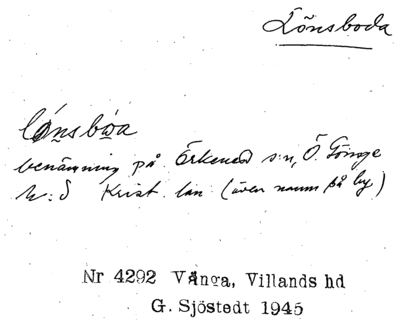 Lönsboda
lónsbøa
benämning på Örkened s:n, Ö. Göinge
h:d Krist. län (även namn på by)
Nr 4292 Vånga, Villands hd
G. Sjöstedt 1945